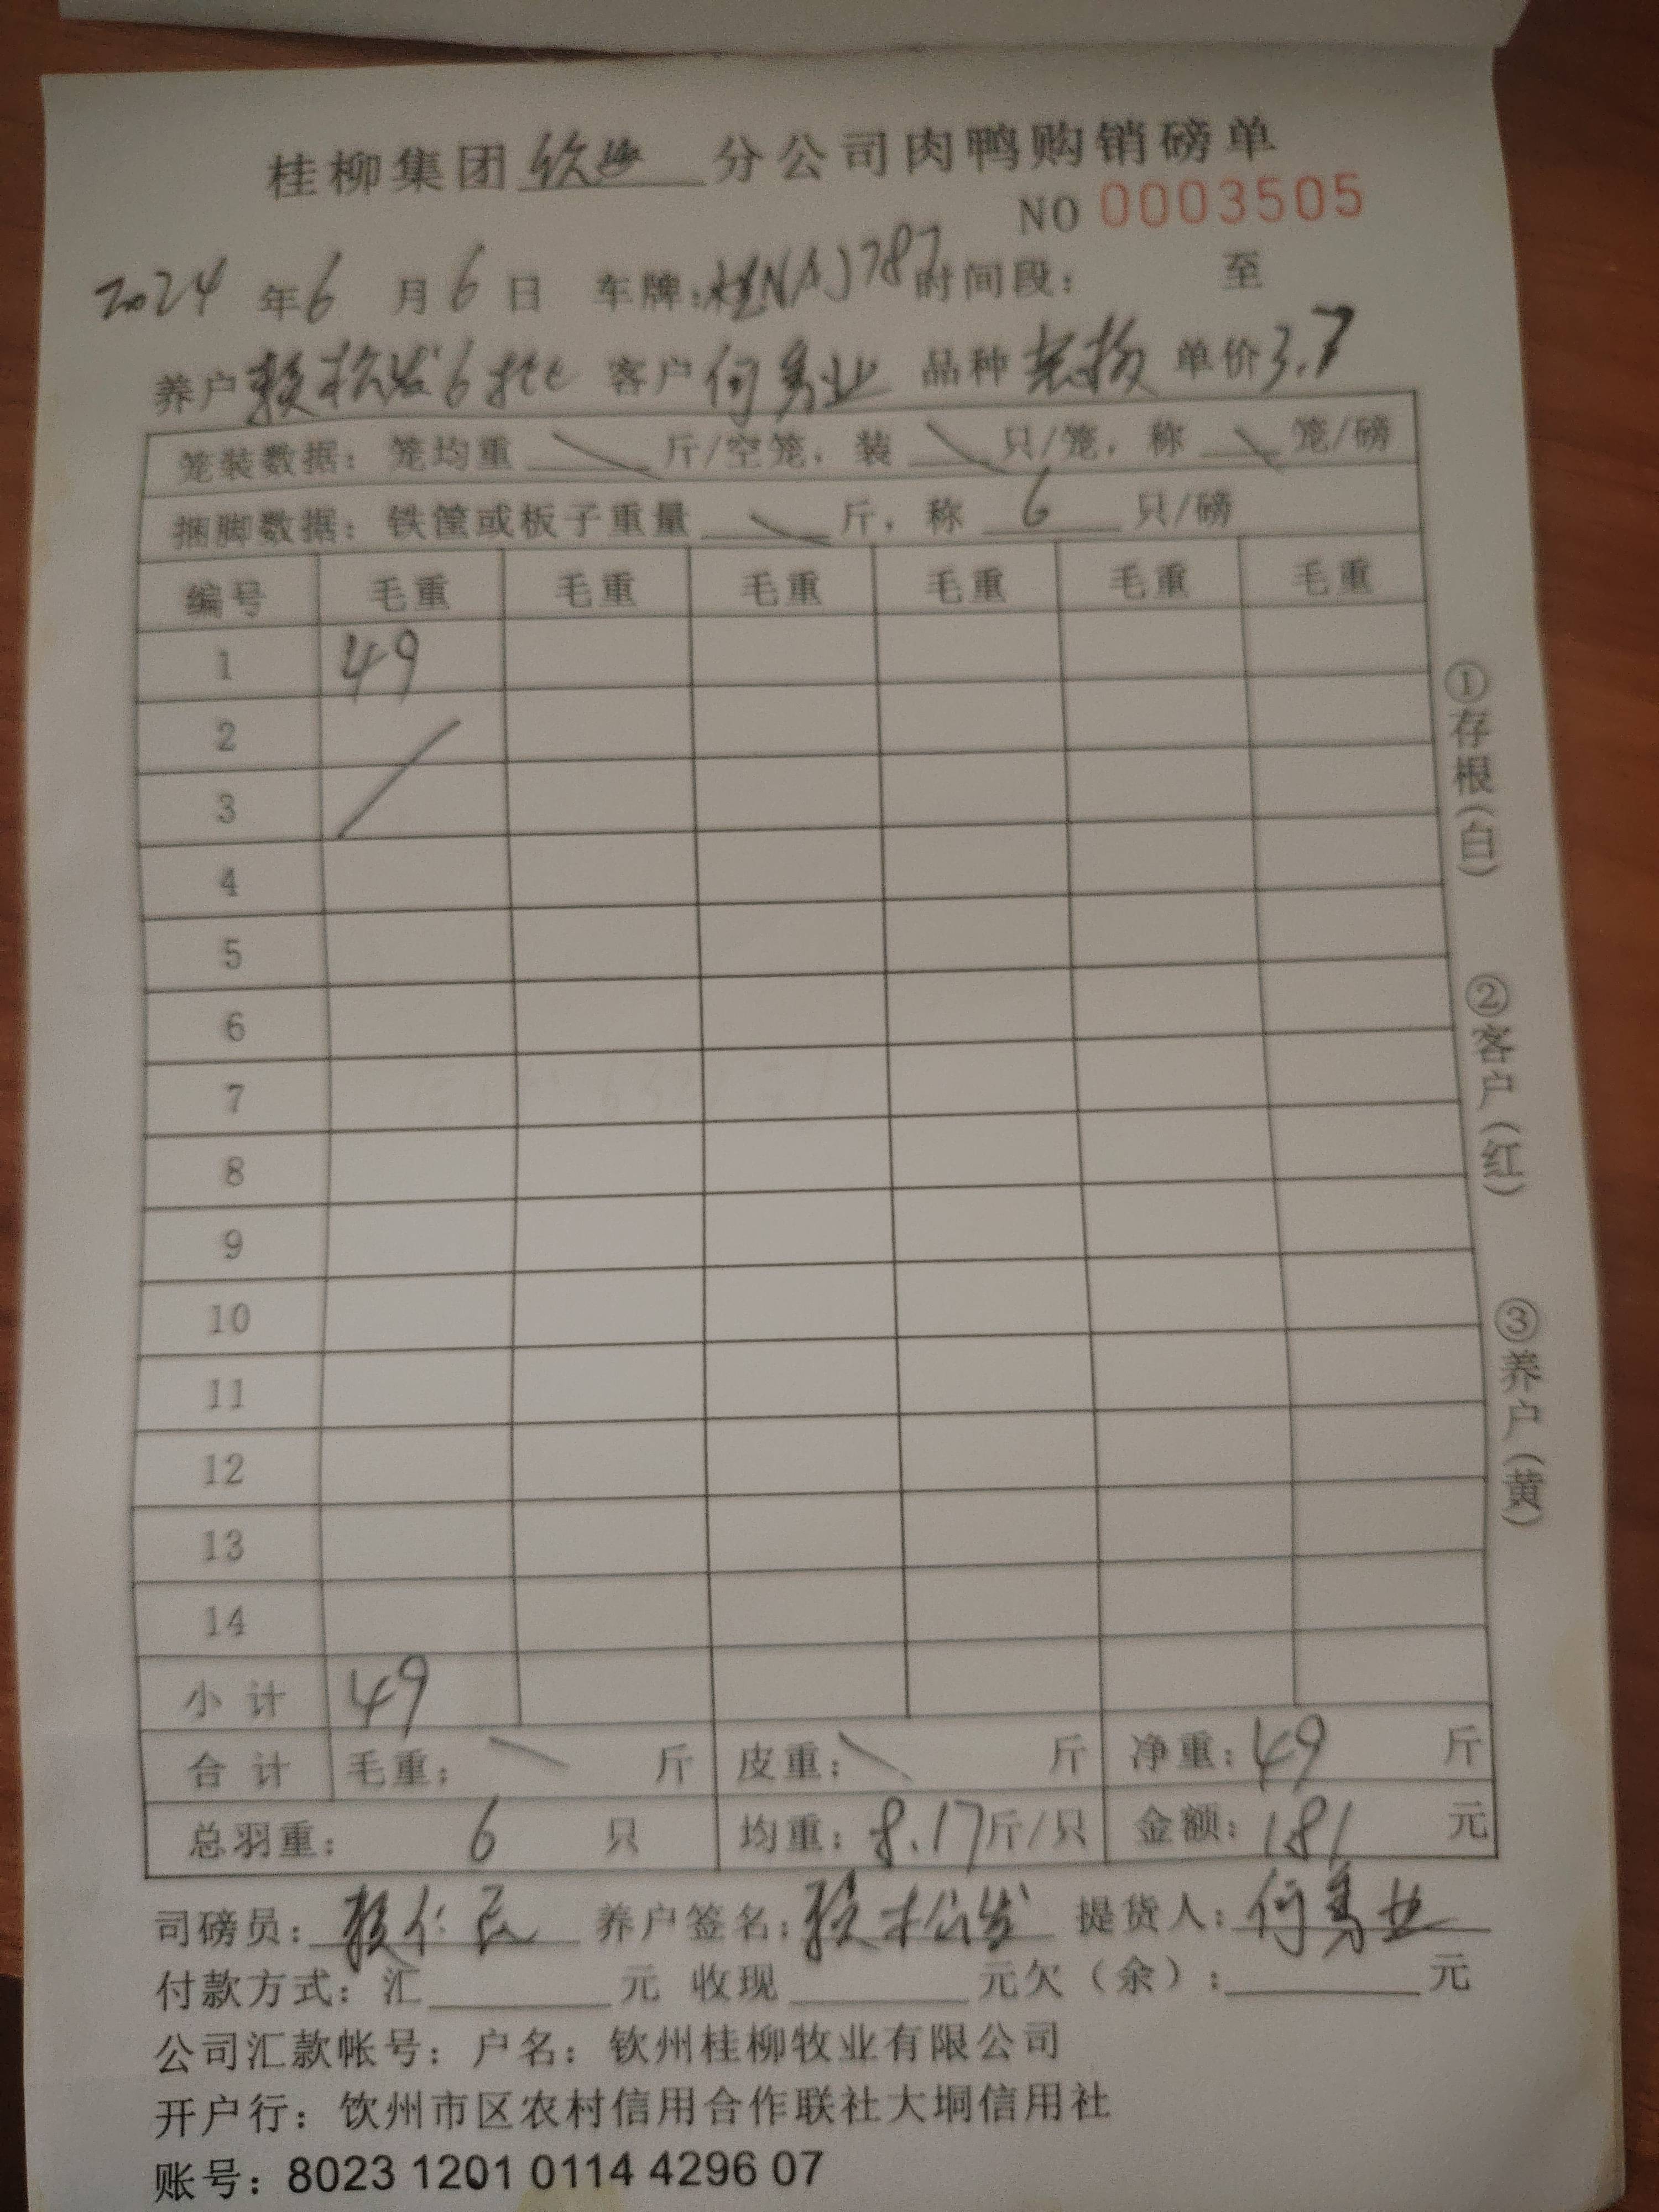 桂柳集团钦州分公司肉鸭购销磅单
NO 0003505
2024年6月6日 车牌:桂N 787 时间段: 至
养户 赖松发6批 客户 何秀业 品种 单价3.7
笼装数据: 笼均重 斤/空笼, 装 只/笼, 称 笼/磅
捆脚数据: 铁筐或板子重量 斤, 称 6 只/磅
编号 毛重 毛重 毛重 毛重 毛重 毛重
1 49
2
3
4
5
6
7
8
9
10
11
12
13
14
小计 49
合计 毛重: 斤 皮重: 斤 净重:49 斤
总羽重: 6 只 均重: 8.17斤/只 金额:181 元
司磅员: 赖仁 养户签名:赖松发 提货人:何秀业
付款方式: 汇 元 收现 元欠(余): 元
公司汇款帐号: 户名: 钦州桂柳牧业有限公司
开户行: 钦州市区农村信用合作联社大垌信用社
账号: 8023 1201 0114 4296 07
①存根(白)
②客户(红)
③养户(黄)